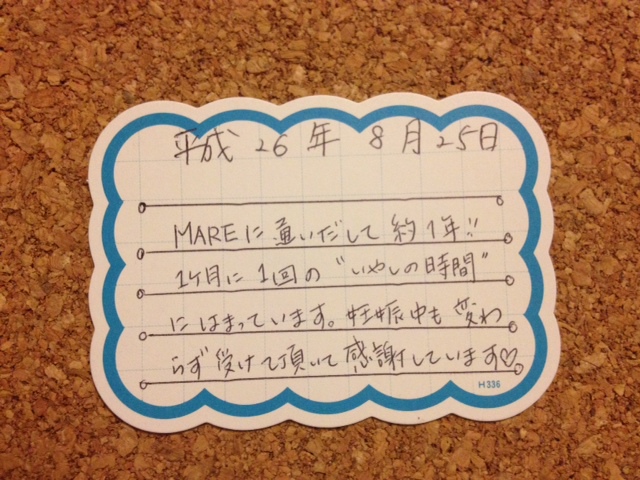 平成26年8月25日
MAREに通いだして約1年!!
1ヶ月に1回の"いやしの時間"
にはまっています。妊娠中も変わ
らず受けて頂いて感謝しています♡
H336